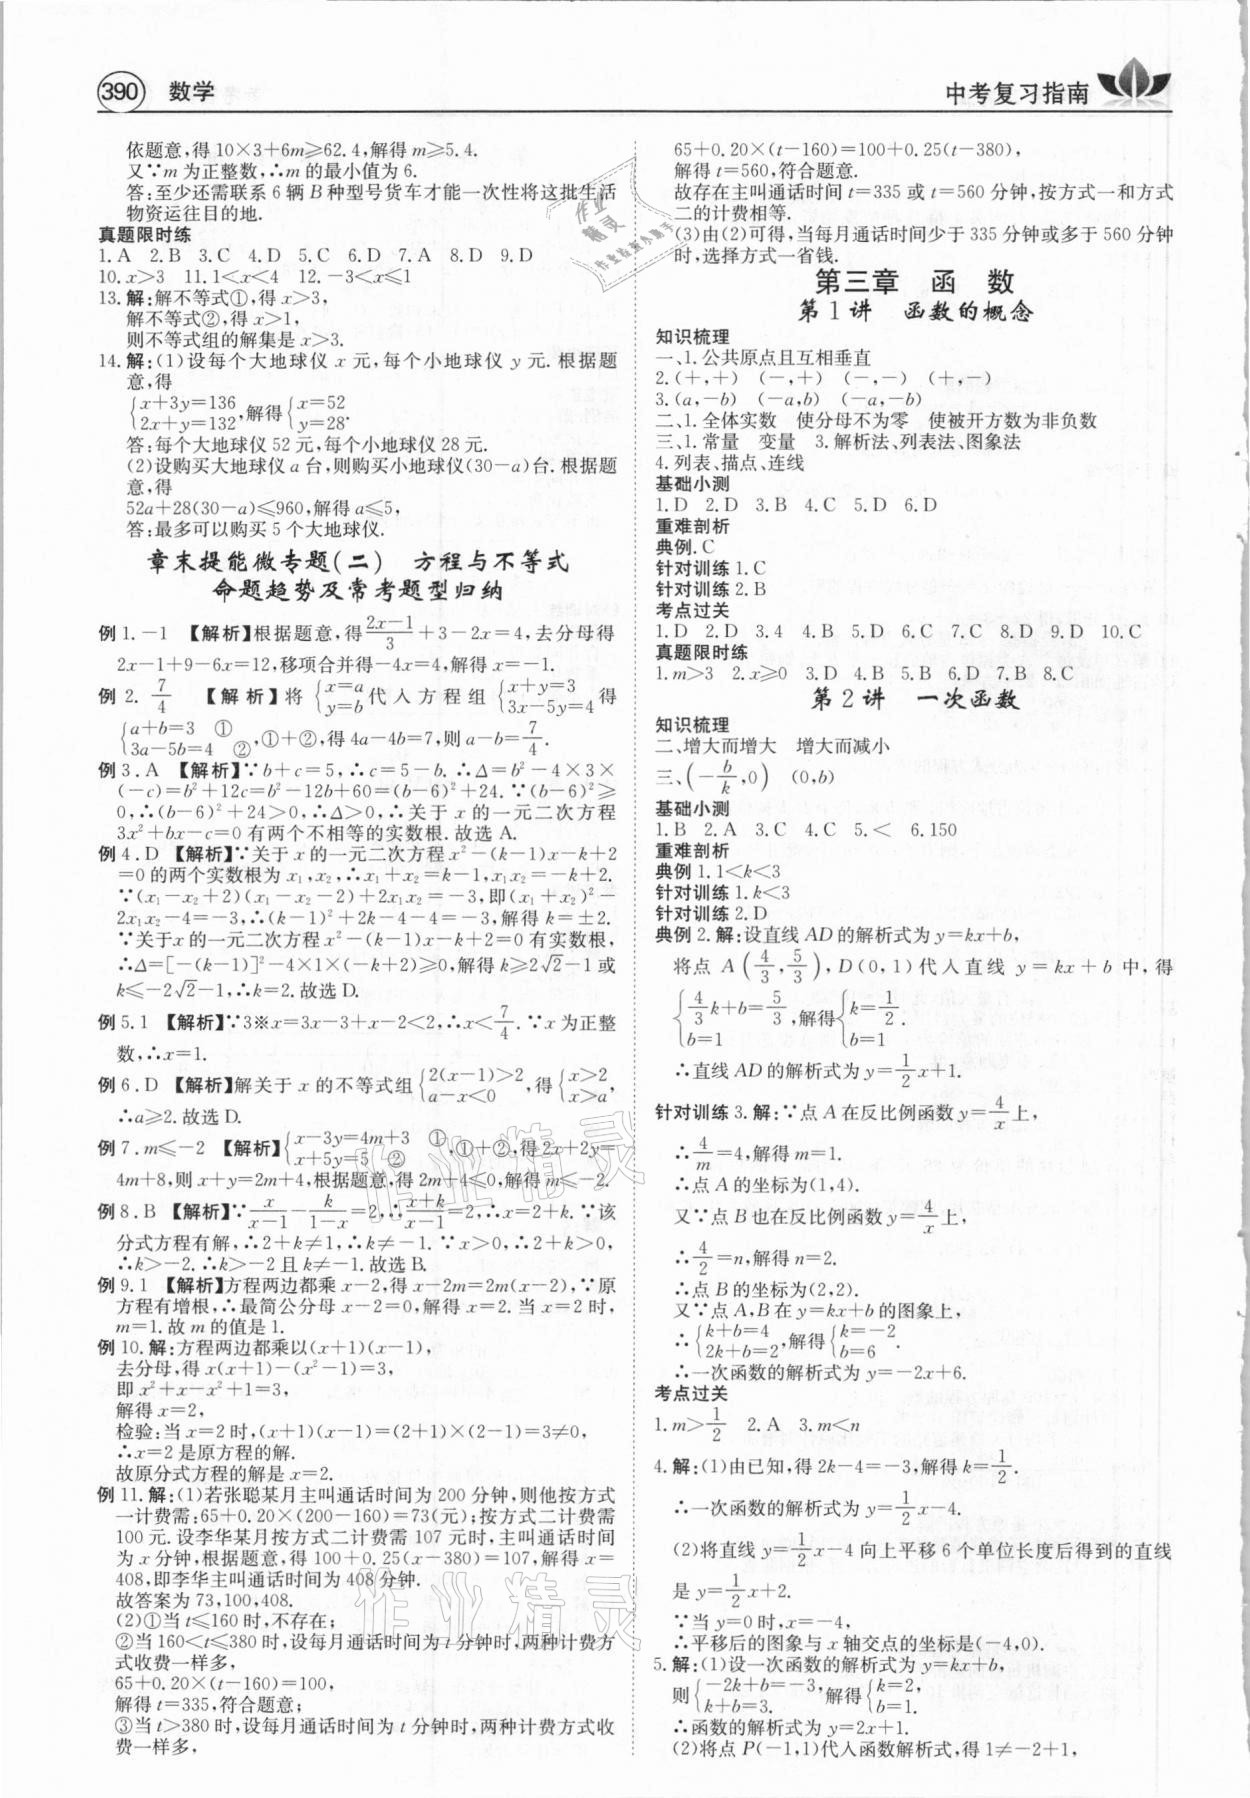 390 数学
中考复习指南
依题意,得10×3+6m≥62.4,解得m≥5.4.
又∵m为正整数,∴m的最小值为6.
答:至少还需联系6辆B种型号货车才能一次性将这批生活
物资运往目的地.
真题限时练
1.A 2.B 3.C 4.D 5.C 6.D 7.A 8.D 9.D
10.x>3 11.1<x<4 12.-3<x≤1
13.解:解不等式①,得x>3,
解不等式②,得x>1,
则不等式组的解集是x>3.
14.解:(1)设每个大地球仪x元,每个小地球仪y元.根据题
意,得
{x+3y=136 2x+y=132,解得{x=52 y=28.
答:每个大地球仪52元,每个小地球仪28元.
(2)设购买大地球仪a台,则购买小地球仪(30-a)台.根据题
意,得
52a+28(30-a)≤960,解得a≤5,
答:最多可以购买5个大地球仪.
章末提能微专题(二) 方程与不等式
命题趋势及常考题型归纳
例1.-1 【解析】根据题意,得(2x-1)/3+3-2x=4,去分母得
2x-1+9-6x=12,移项合并得-4x=4,解得x=-1.
例2.7/4 【解析】将{x=a y=b代入方程组{x+y=3 3x-5y=4得
{a+b=3 ① 3a-5b=4 ②,①+②,得4a-4b=7,则a-b=7/4.
例3.A 【解析】∵b+c=5,∴c=5-b.∴Δ=b²-4×3×
(-c)=b²+12c=b²-12b+60=(b-6)²+24.∵(b-6)²≥
0,∴(b-6)²+24>0,∴Δ>0,∴关于x的一元二次方程
3x²+bx-c=0有两个不相等的实数根.故选A.
例4.D 【解析】∵关于x的一元二次方程x²-(k-1)x-k+2
=0的两个实数根为x₁,x₂,∴x₁+x₂=k-1,x₁x₂=-k+2.
∵(x₁-x₂+2)(x₁-x₂-2)+2x₁x₂=-3,即(x₁+x₂)²-
2x₁x₂-4=-3,∴(k-1)²+2k-4-4=-3,解得k=±2.
∵关于x的一元二次方程x²-(k-1)x-k+2=0有实数根,
∴Δ=[-(k-1)]²-4×1×(-k+2)≥0,解得k≥2√2-1或
k≤-2√2-1,∴k=2.故选D.
例5.1 【解析】∵3※x=3x-3+x-2<2,∴x<7/4.∵x为正整
数,∴x=1.
例6.D 【解析】解关于x的不等式组{2(x-1)>2 a-x<0,得{x>2 x>a,
∴a≥2.故选D.
例7.m≤-2 【解析】{x-3y=4m+3 ① x+5y=5 ②,①+②,得2x+2y=
4m+8,则x+y=2m+4,根据题意,得2m+4≤0,解得m≤-2.
例8.B 【解析】∵x/(x-1)-k/(1-x)=2,∴(x+k)/(x-1)=2,∴x=2+k.∵该
分式方程有解,∴2+k≠1,∴k≠-1.∵x>0,∴2+k>0,
∴k>-2.∴k>-2且k≠-1.故选B.
例9.1 【解析】方程两边都乘x-2,得x-2m=2m(x-2),∵原
方程有增根,∴最简公分母x-2=0,解得x=2.当x=2时,
m=1.故m的值是1.
例10.解:方程两边都乘以(x+1)(x-1),
去分母,得x(x+1)-(x²-1)=3,
即x²+x-x²+1=3,
解得x=2,
检验:当x=2时,(x+1)(x-1)=(2+1)×(2-1)=3≠0,
∴x=2是原方程的解.
故原分式方程的解是x=2.
例11.解:(1)若张聪某月主叫通话时间为200分钟,则他按方式
一计费需:65+0.20×(200-160)=73(元);按方式二计费需
100元.设李华某月按方式二计费需107元时,主叫通话时间
为x分钟,根据题意,得100+0.25(x-380)=107,解得x=
408,即李华主叫通话时间为408分钟.
故答案为73,100,408.
(2)①当t≤160时,不存在;
②当160<t≤380时,设每月通话时间为t分钟时,两种计费方
式收费一样多,
65+0.20×(t-160)=100,
解得t=335,符合题意;
③当t>380时,设每月通话时间为t分钟时,两种计费方式收
费一样多,
65+0.20×(t-160)=100+0.25(t-380),
解得t=560,符合题意.
故存在主叫通话时间t=335或t=560分钟,按方式一和方式
二的计费相等.
(3)由(2)可得,当每月通话时间少于335分钟或多于560分钟
时,选择方式一省钱.
第三章 函 数
第1讲 函数的概念
知识梳理
一、1.公共原点且互相垂直
2.(+,+) (-,+) (-,-) (+,-)
3.(a,-b) (-a,b) (-a,-b)
二、1.全体实数 使分母不为零 使被开方数为非负数
三、1.常量 变量 3.解析法、列表法、图象法
4.列表、描点、连线
基础小测
1.D 2.D 3.B 4.C 5.D 6.D
重难剖析
典例.C
针对训练1.C
针对训练2.B
考点过关
1.D 2.D 3.4 4.B 5.D 6.C 7.C 8.D 9.D 10.C
真题限时练
1.m>3 2.x≥0 3.D 4.B 5.B 6.D 7.B 8.C
第2讲 一次函数
知识梳理
二、增大而增大 增大而减小
三、(-b/k,0) (0,b)
基础小测
1.B 2.A 3.C 4.C 5.< 6.150
重难剖析
典例1.1<k<3
针对训练1.k<3
针对训练2.D
典例2.解:设直线AD的解析式为y=kx+b,
将点A(4/3,5/3),D(0,1)代入直线y=kx+b中,得
{4/3k+b=5/3 b=1,解得{k=1/2 b=1.
∴直线AD的解析式为y=1/2x+1.
针对训练3.解:∵点A在反比例函数y=4/x上,
∴4/m=4,解得m=1.
∴点A的坐标为(1,4).
又∵点B也在反比例函数y=4/x上,
∴4/2=n,解得n=2.
∴点B的坐标为(2,2).
又∵点A,B在y=kx+b的图象上,
∴{k+b=4 2k+b=2,解得{k=-2 b=6.
∴一次函数的解析式为y=-2x+6.
考点过关
1.m>1/2 2.A 3.m<n
4.解:(1)由已知,得2k-4=-3,解得k=1/2.
∴一次函数的解析式为y=1/2x-4.
(2)将直线y=1/2x-4向上平移6个单位长度后得到的直线
是y=1/2x+2.
∵当y=0时,x=-4,
∴平移后的图象与x轴交点的坐标是(-4,0).
5.解:(1)设一次函数的解析式为y=kx+b,
则{-2k+b=-3 k+b=3.解得{k=2, b=1.
∴函数的解析式为y=2x+1.
(2)将点P(-1,1)代入函数解析式,得1≠-2+1,
作业精灵
作业精灵